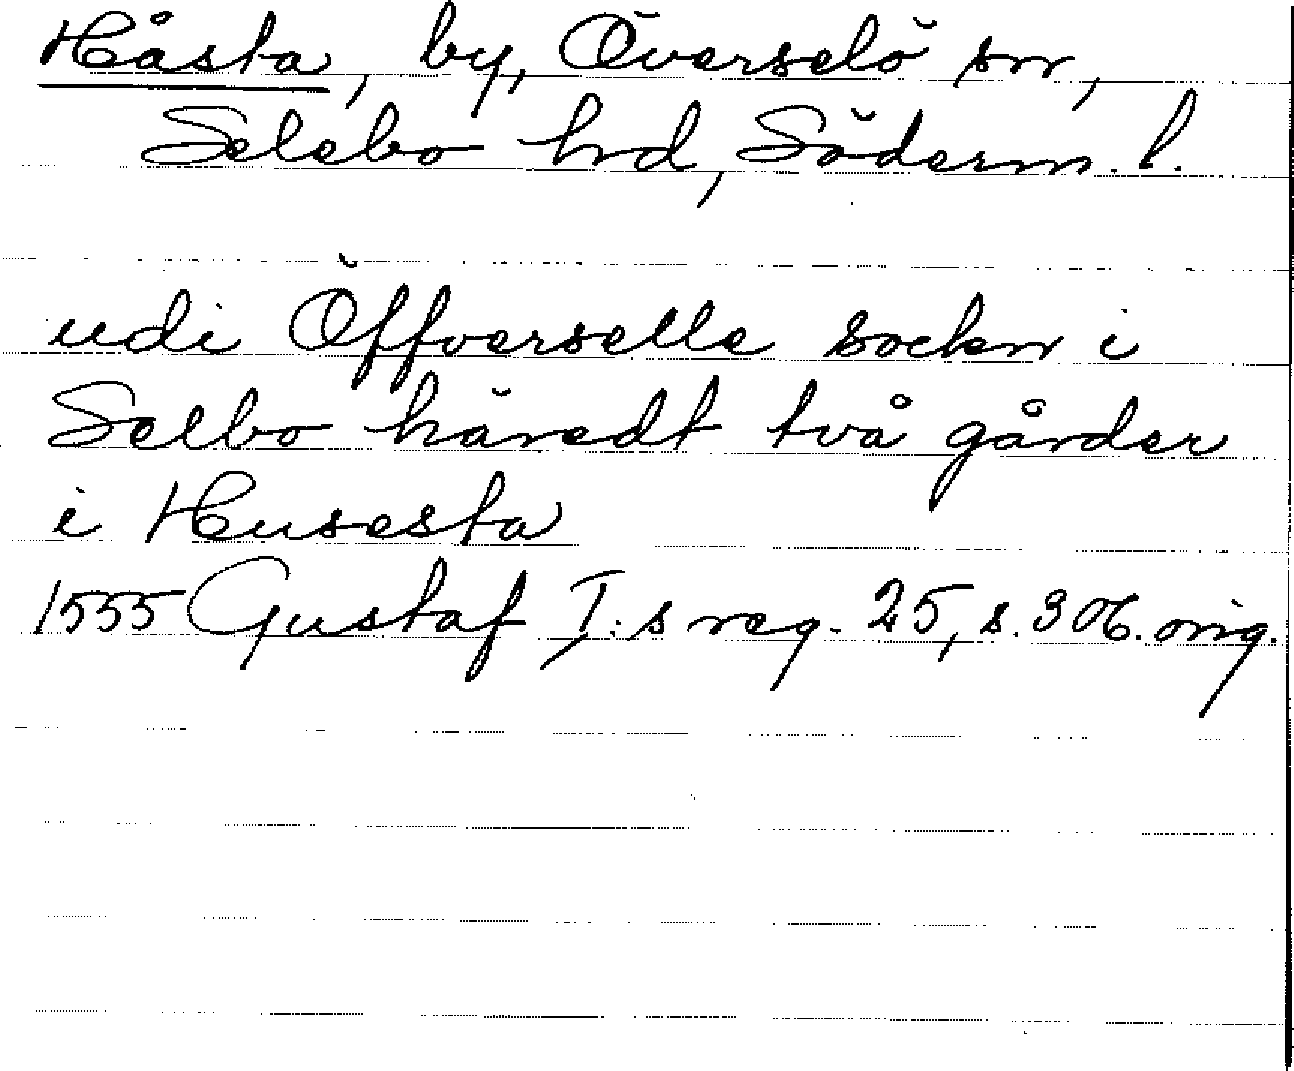 Håsta, by, Överselö sn,
Selebo hrd, Söderm. l.
udi Öffverselle sockn i
Selbo häredt två gårder
i Husesta
1555 Gustaf I:s reg. 25, s. 306. orig.